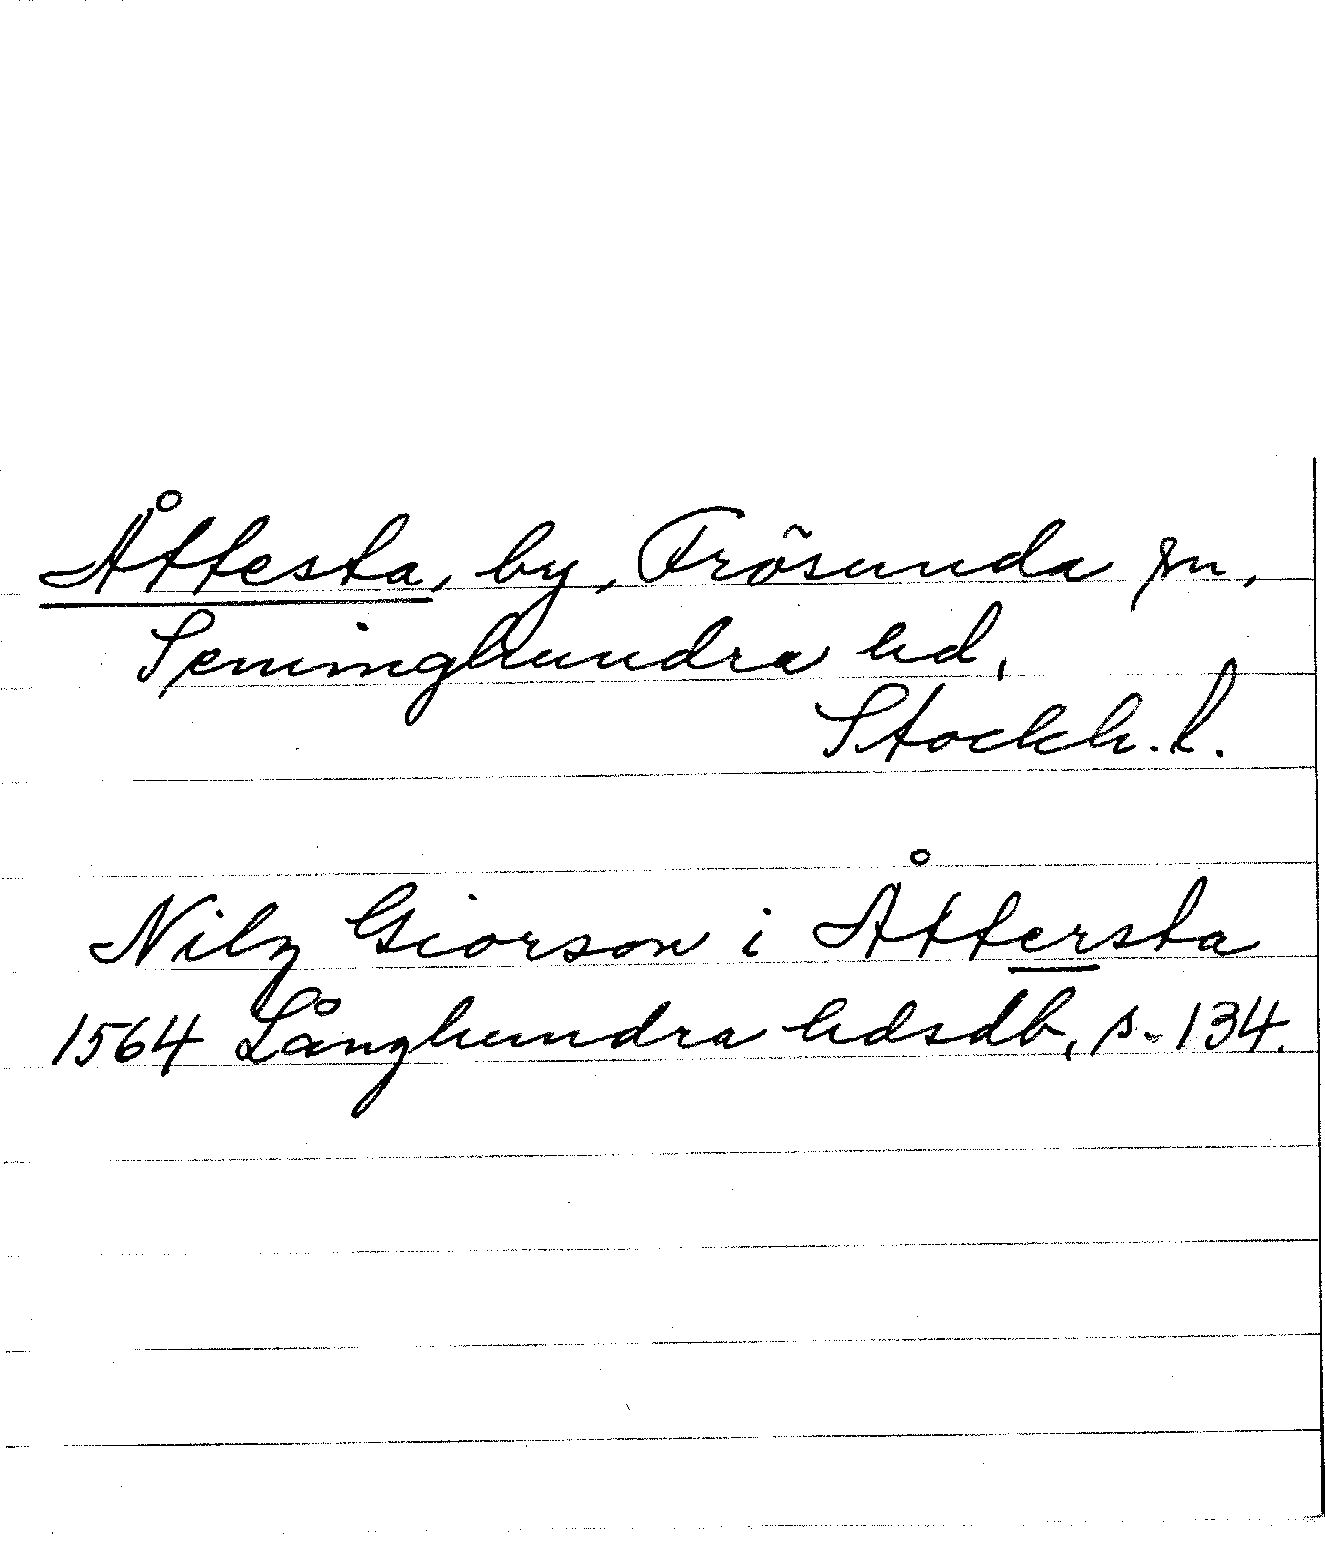 Åttesta, by, Frösunda sn,
Seminghundra hd,
Stockh. l.
Nilz Giorson i Åttersta
1564 Långhundra hdsdb, s. 134.